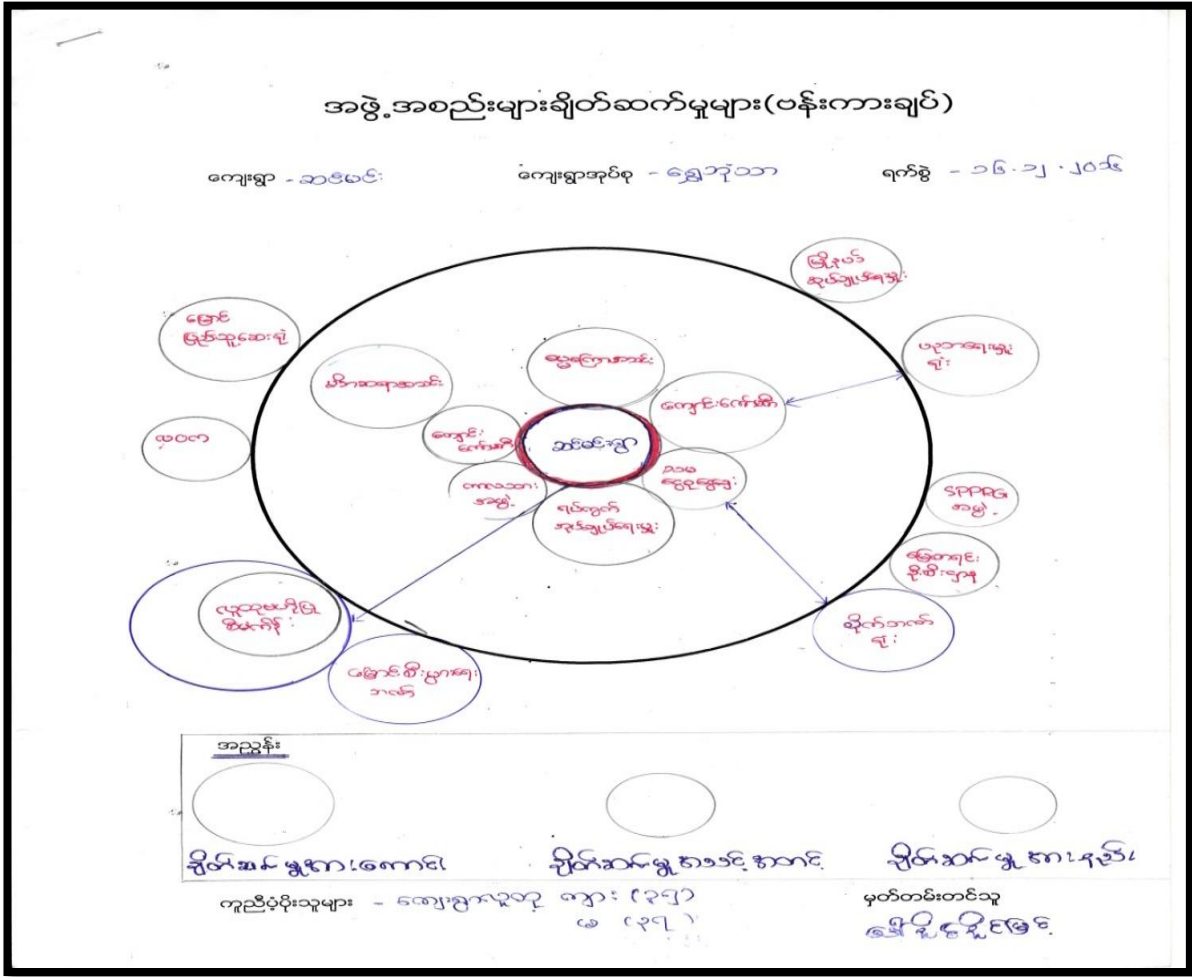 အဖွဲ့အစည်းများချိတ်ဆက်မှုများ(ဗန်းကားချပ်)
ကျေးရွာ - ဆင်မင်း
ကျေးရွာအုပ်စု - ရွှေဘုံသာ
ရက်စွဲ - ၁၆.၁၂.၂၀၁၆
မြို့နယ်
အုပ်ချုပ်ရေးမှူး
မြောင်
ပြည်သူ့ဆေးရုံ
ပညာရေးမှူး
ရုံး
မိဘဆရာအသင်း
ကျောင်းကော်မတီ
ကျောင်း
ကော်မတီ
ဆင်မင်းရွာ
လဝက
ကာလသား
အဖွဲ့
ရပ်ကွက်
အုပ်ချုပ်ရေးမှူး
SPPRG
အဖွဲ့
မြေစာရင်း
ဦးစီးဌာန
လူထုဗဟိုပြု
စီမံကိန်း
စိုက်ဘဏ်
ရုံး
မြောင်စီးပွားရေး
ဘဏ်
အညွှန်း
ချိတ်ဆက်မှုအားကောင်း
ချိတ်ဆက်မှုအသင့်အတင့်
ချိတ်ဆက်မှုအားနည်း
ကူညီပံ့ပိုးသူများ - ကျေးရွာလူထု ကျား (၃၅)
မ (၃၇)
မှတ်တမ်းတင်သူ